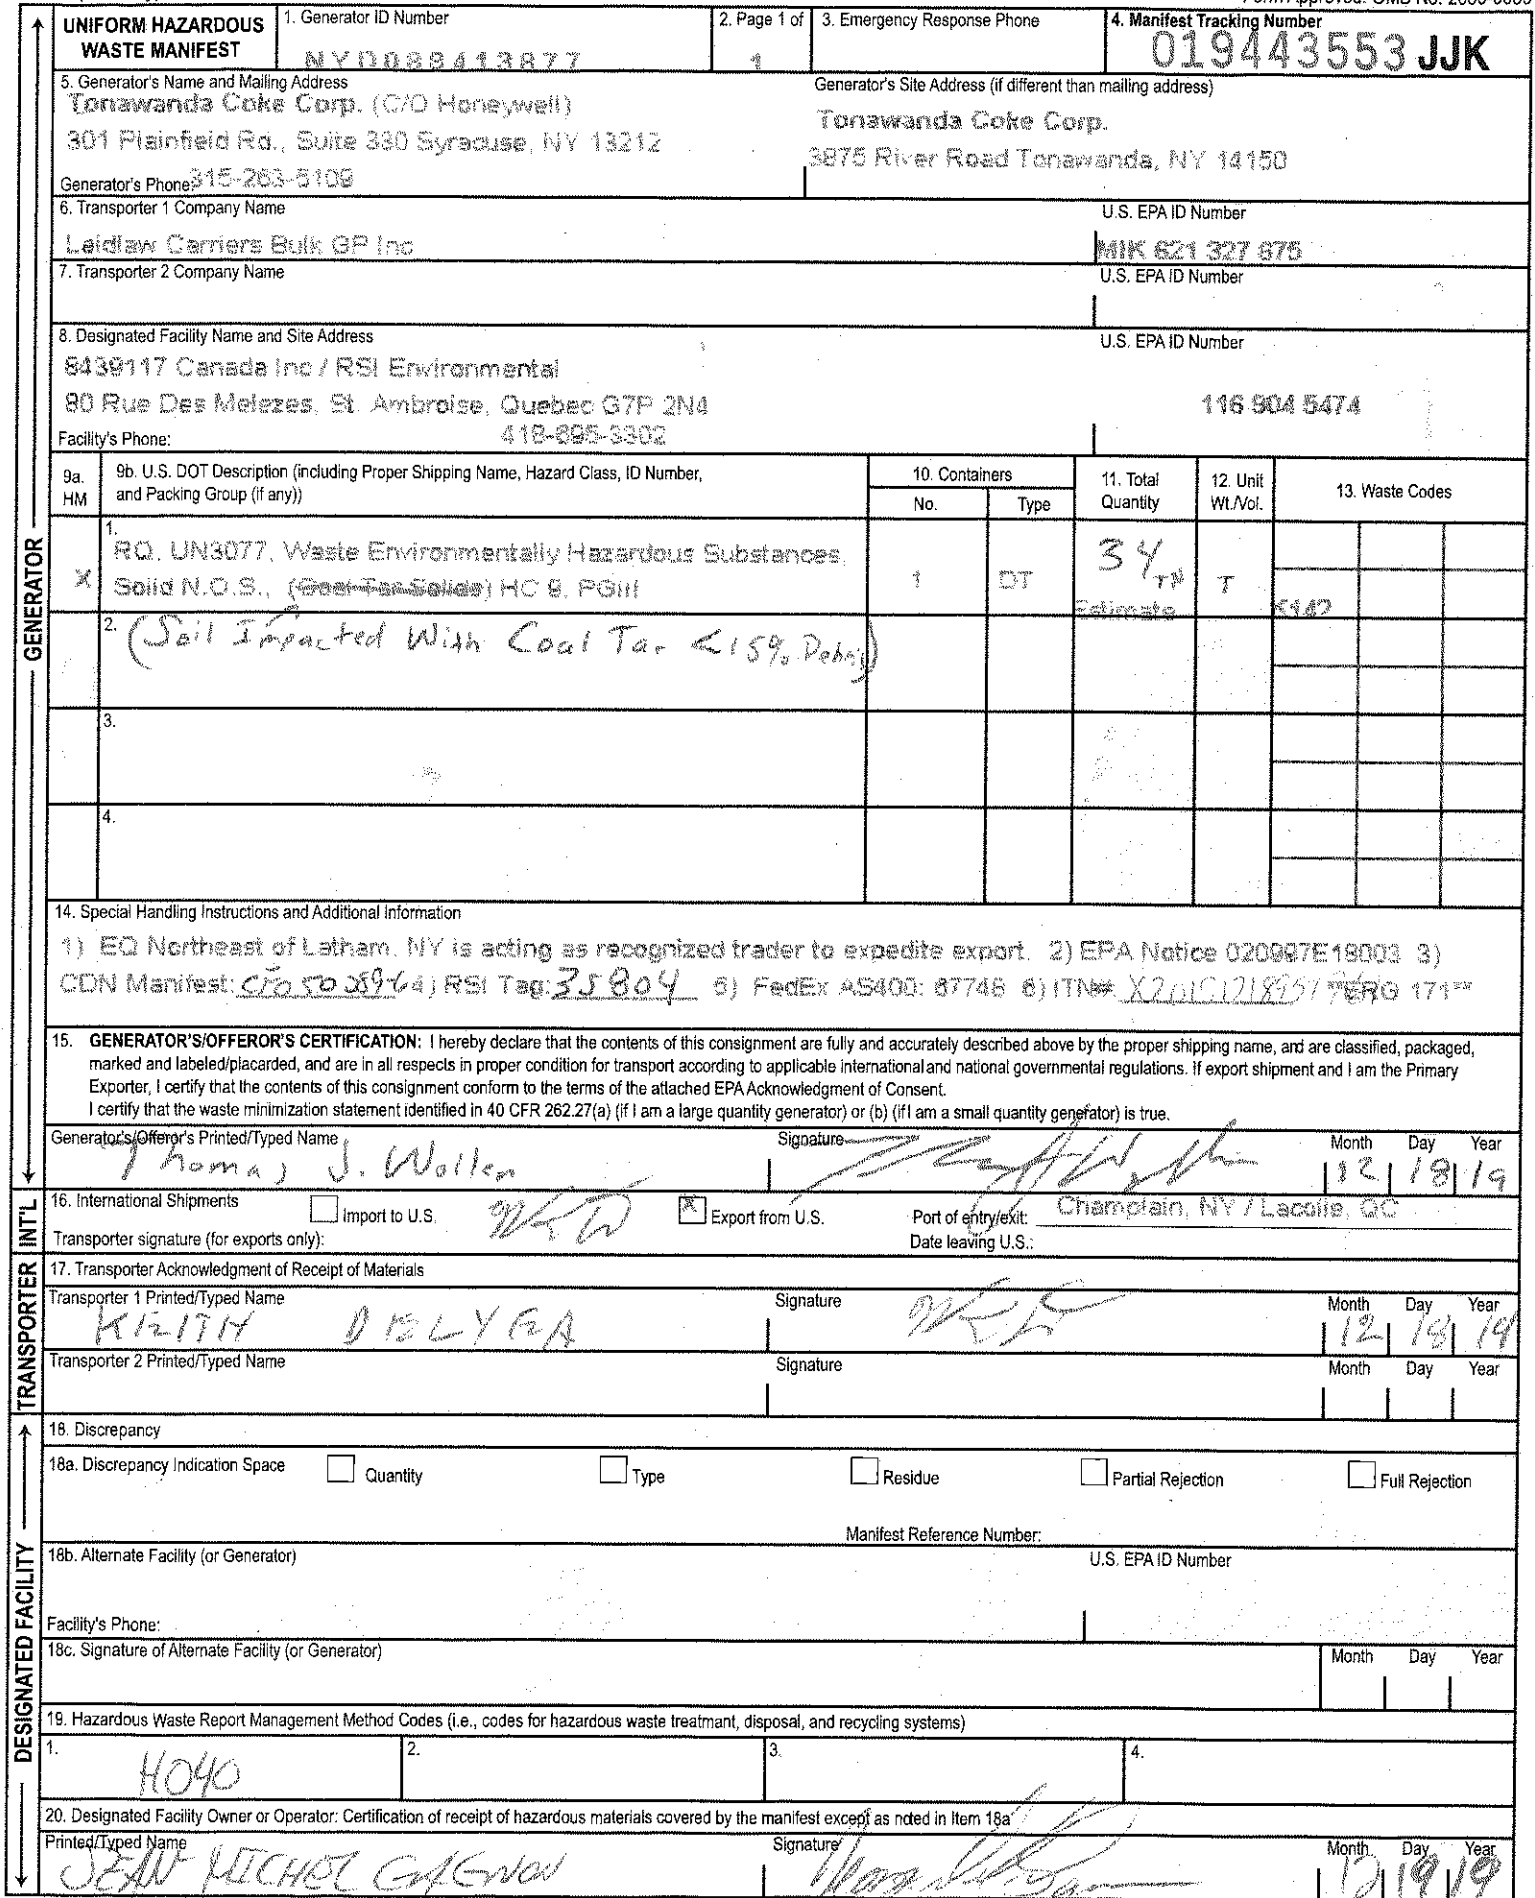 UNIFORM HAZARDOUS WASTE MANIFEST
1. Generator ID Number
NYD088413877
2. Page 1 of
1
3. Emergency Response Phone
4. Manifest Tracking Number
019443553 JJK
5. Generator's Name and Mailing Address
Tonawanda Coke Corp. (C/O Honeywell)
301 Plainfield Rd., Suite 330 Syracuse, NY 13212
Generator's Phone: 315-263-5109
Generator's Site Address (if different than mailing address)
Tonawanda Coke Corp.
3875 River Road Tonawanda, NY 14150
6. Transporter 1 Company Name
Laidlaw Carriers Bulk GP Inc
U.S. EPA ID Number
MIK 621 327 675
7. Transporter 2 Company Name
U.S. EPA ID Number
8. Designated Facility Name and Site Address
8439117 Canada Inc / RSI Environmental
80 Rue Des Melezes, St. Ambroise, Quebec G7P 2N4
Facility's Phone: 418-695-3302
U.S. EPA ID Number
116 904 5474
GENERATOR
9a. HM
9b. U.S. DOT Description (including Proper Shipping Name, Hazard Class, ID Number,
and Packing Group (if any))
10. Containers
No.
Type
11. Total Quantity
12. Unit Wt./Vol.
13. Waste Codes
X
1.
RQ, UN3077, Waste Environmentally Hazardous Substances,
Solid N.O.S., (Coal Tar Solids) HC 9, PGIII
1
DT
34 TN
Estimate
T
K142
2. (Soil Impacted With Coal Tar <15% Debris)
3.
4.
14. Special Handling Instructions and Additional Information
1) EQ Northeast of Latham, NY is acting as recognized trader to expedite export. 2) EPA Notice 020997E18003 3)
CDN Manifest: 4) RSI Tag: 35804 5) FedEx AS400: 67746 6) ITN#: **ERG 171**
15. GENERATOR'S/OFFEROR'S CERTIFICATION: I hereby declare that the contents of this consignment are fully and accurately described above by the proper shipping name, and are classified, packaged,
marked and labeled/placarded, and are in all respects in proper condition for transport according to applicable international and national governmental regulations. If export shipment and I am the Primary
Exporter, I certify that the contents of this consignment conform to the terms of the attached EPA Acknowledgment of Consent.
I certify that the waste minimization statement identified in 40 CFR 262.27(a) (if I am a large quantity generator) or (b) (if I am a small quantity generator) is true.
Generator's/Offeror's Printed/Typed Name
Thomas J. Wollen
Signature
Month Day Year
12 18 19
INT'L
16. International Shipments
Import to U.S.
X Export from U.S.
Port of entry/exit: Champlain, NY / Lacolle, QC
Transporter signature (for exports only):
Date leaving U.S.:
TRANSPORTER
17. Transporter Acknowledgment of Receipt of Materials
Transporter 1 Printed/Typed Name
KEITH DELYEA
Signature
Month Day Year
12 18 19
Transporter 2 Printed/Typed Name
Signature
Month Day Year
DESIGNATED FACILITY
18. Discrepancy
18a. Discrepancy Indication Space
Quantity
Type
Residue
Partial Rejection
Full Rejection
Manifest Reference Number:
18b. Alternate Facility (or Generator)
U.S. EPA ID Number
Facility's Phone:
18c. Signature of Alternate Facility (or Generator)
Month Day Year
19. Hazardous Waste Report Management Method Codes (i.e., codes for hazardous waste treatmant, disposal, and recycling systems)
1. H040
2.
3.
4.
20. Designated Facility Owner or Operator: Certification of receipt of hazardous materials covered by the manifest except as noted in Item 18a
Printed/Typed Name
JEAN MICHEL GAGNON
Signature
Month Day Year
12 19 19